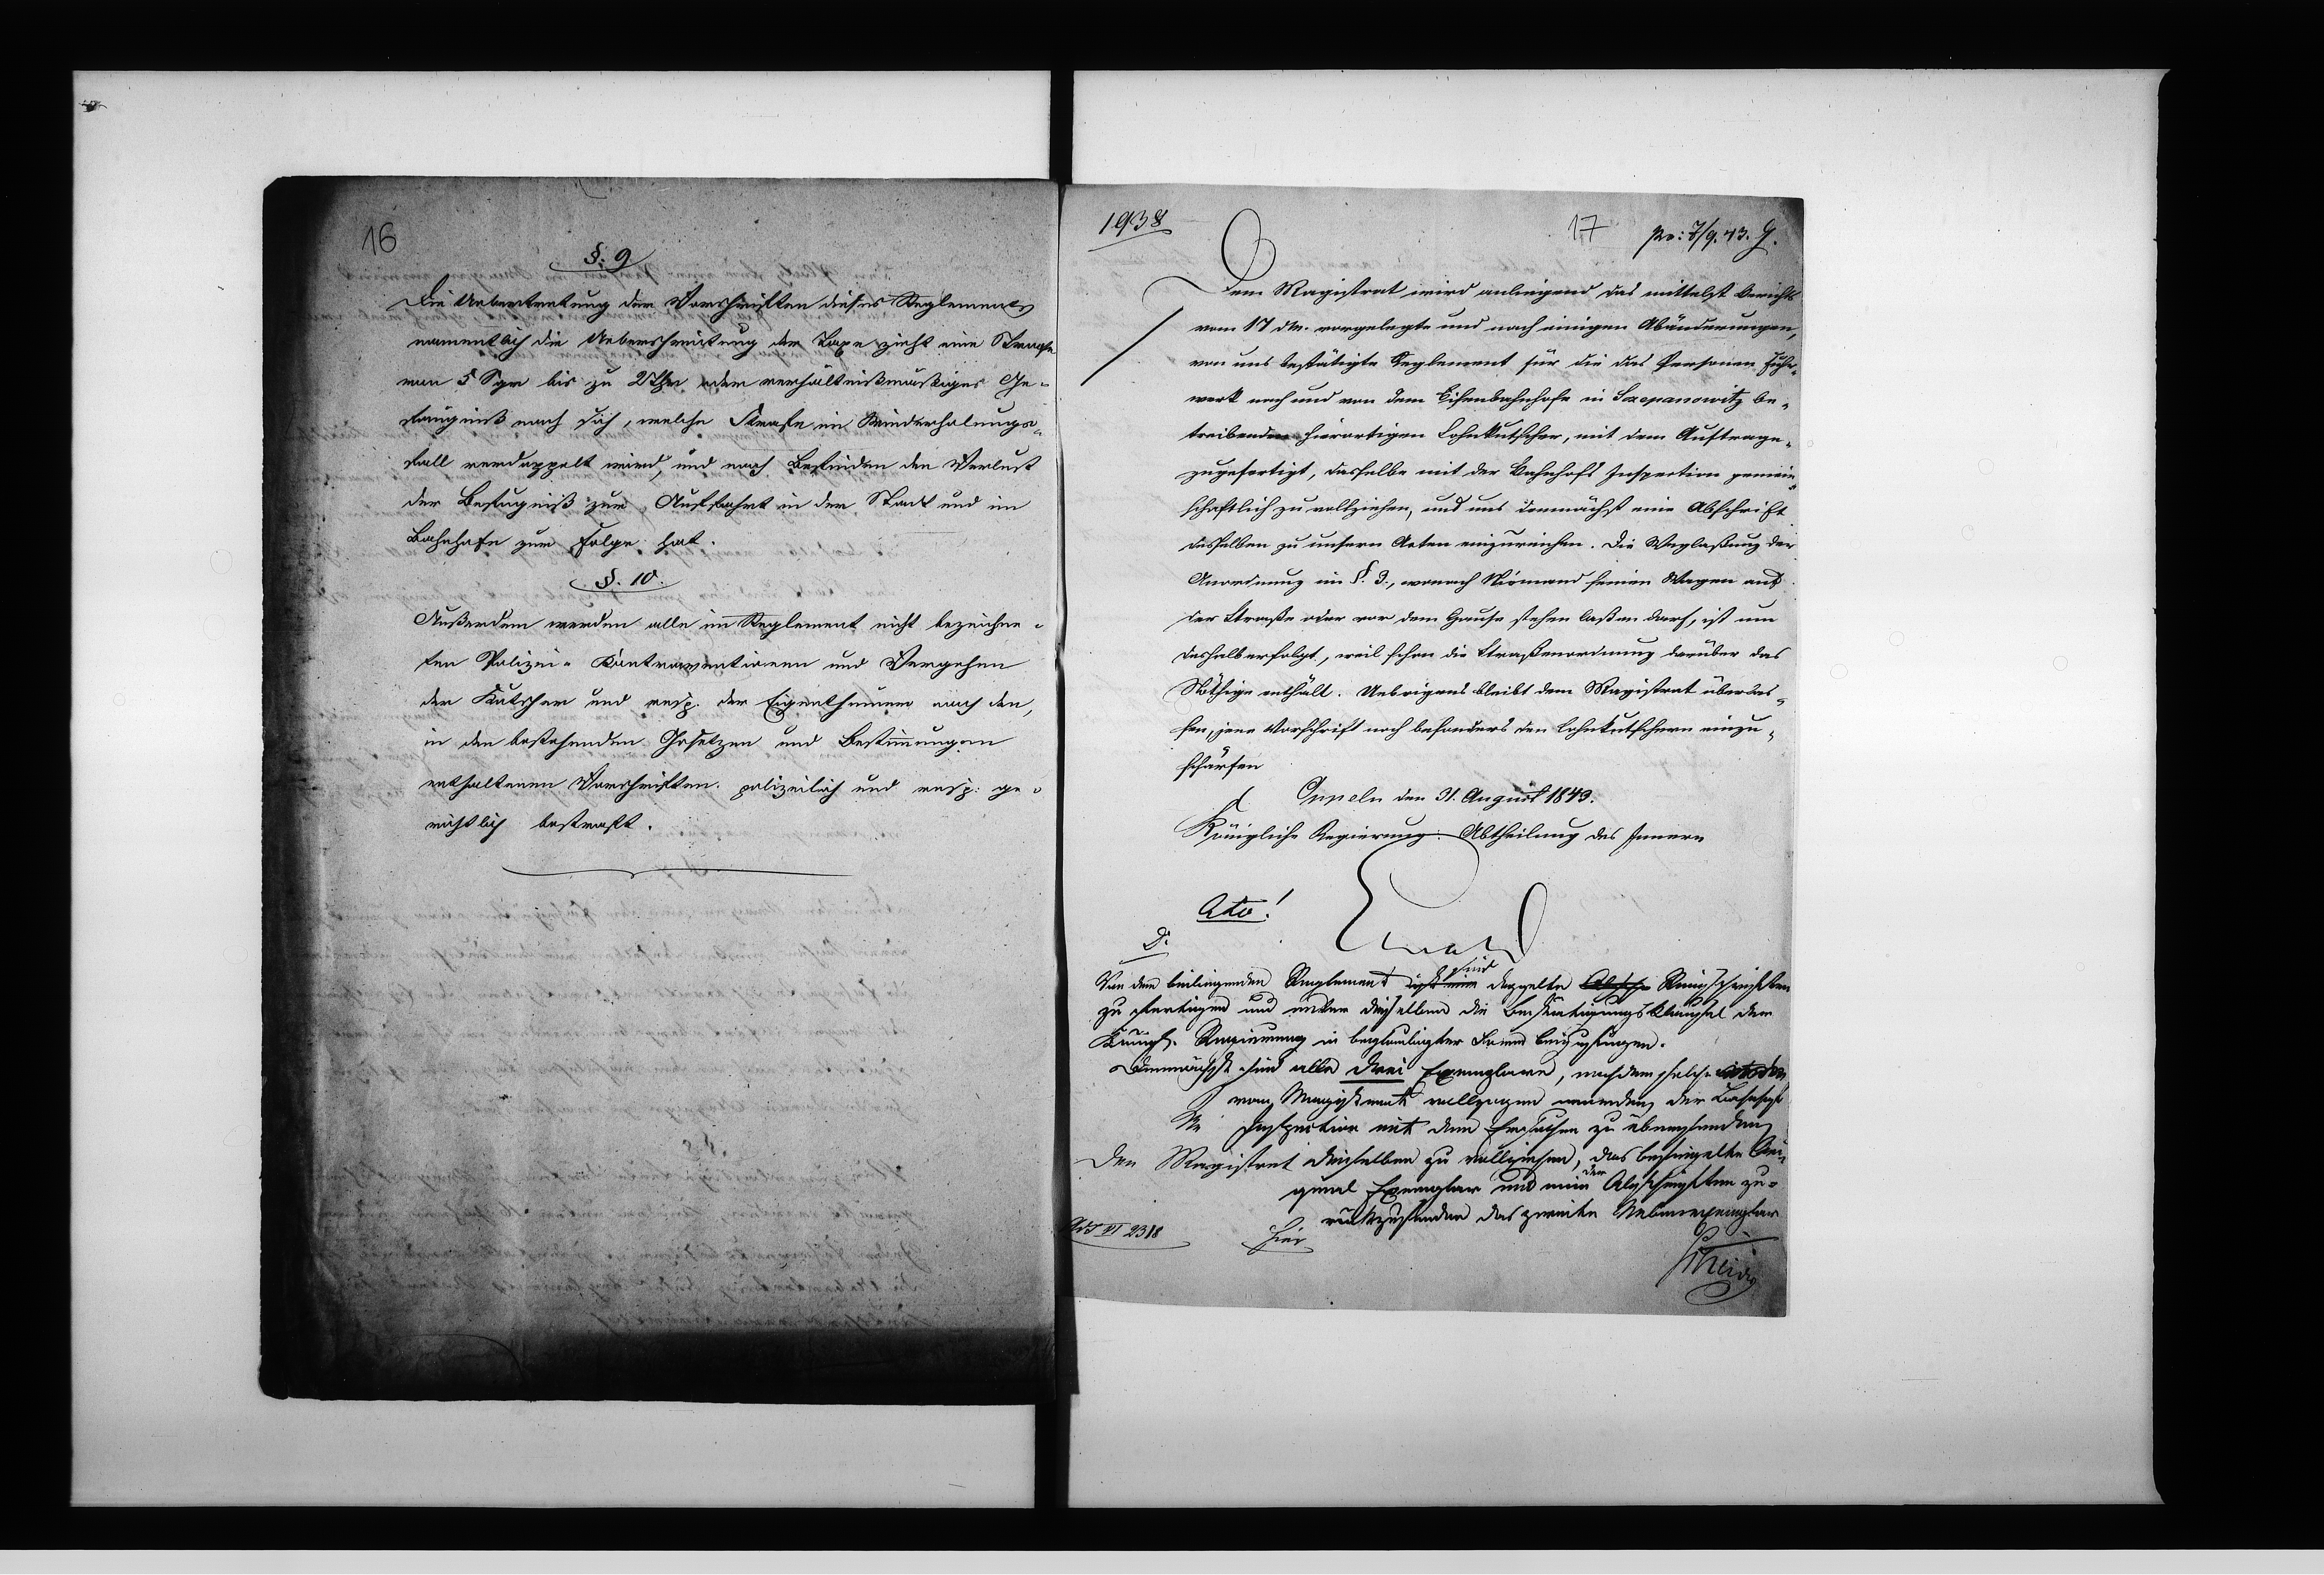 16
§. 9
Die Uebertretung der Vorschriften dieses Reglements
namentlich die Ueberschreitung der Taxe zieht eine Strafe
von 5 Sgr bis zu 2 Thlr oder verhältnißmäßiges Ge-
fängniß nach sich, welche Strafe im Wiederholungs-
fall verdoppelt wird, und nach Befinden den Verlust
der Befugniß zur Auffahrt in der Stadt und im
Bahnhofe zur Folge hat.
§. 10.
Außerdem werden alle im Reglement nicht bezeichne-
ten Polizei-Kontraventionen und Vergehen
der Kutscher und resp. der Eigenthümer nach den,
in den bestehenden Gesetzen und Bestimmungen
enthaltenen Vorschriften polizeilich und resp: ge-
richtlich bestraft.
1938
17
pr: 7/9. 43. G.
Dem Magistrat wird anliegend das mittelst Berichts
vom 17 d. M. vorgelegte und nach einigen Abänderungen,
von uns bestätigte Reglement für die das Personen-Fuhr-
werk nach und von dem Eisenbahnhofe in Sczepanowitz be-
treibenden hierortigen Lohnkutscher, mit dem Auftrage
zugefertigt, dasselbe mit der Bahnhofs Inspection gemein-
schaftlich zu vollziehen, und uns demnächst eine Abschrift
desselben zu unsern Acten einzureichen. Die Weglaßung der
Anordnung im §. 3., wonach Niemand seinen Wagen auf
der Straße oder vor dem Hause stehen laßen darf, ist nur
deshalb erfolgt, weil schon die Straßenordnung darüber das
Nöthige enthält. Uebrigens bleibt dem Magistrat überlas-
sen, jene Vorschrift noch besonders den Lohnkutschern einzu-
schärfen
Oppeln den 31. August 1843.
Königliche Regierung. Abtheilung des Innern
Cito!
D.
Von dem beiliegenden Reglement ist eine sind doppelte Reinschriften
zu fertigen und unter dieselben die Bestätigungsklausel der
Königl. Regierung in beglaubigter Form beizufügen.
Demnächst sind alle drei Exemplare, nachdem solche
vom Magistrat vollzogen worden, der Bahnhofs
Inspection mit dem Ersuchen zu übersenden
Den Magistrat dieselben zu vollziehen, das besiegelte Ori-
ginal Exemplar und eine der Abschriften zu-
rückzusenden das zweite Nebenexemplar
VI 2318
hier